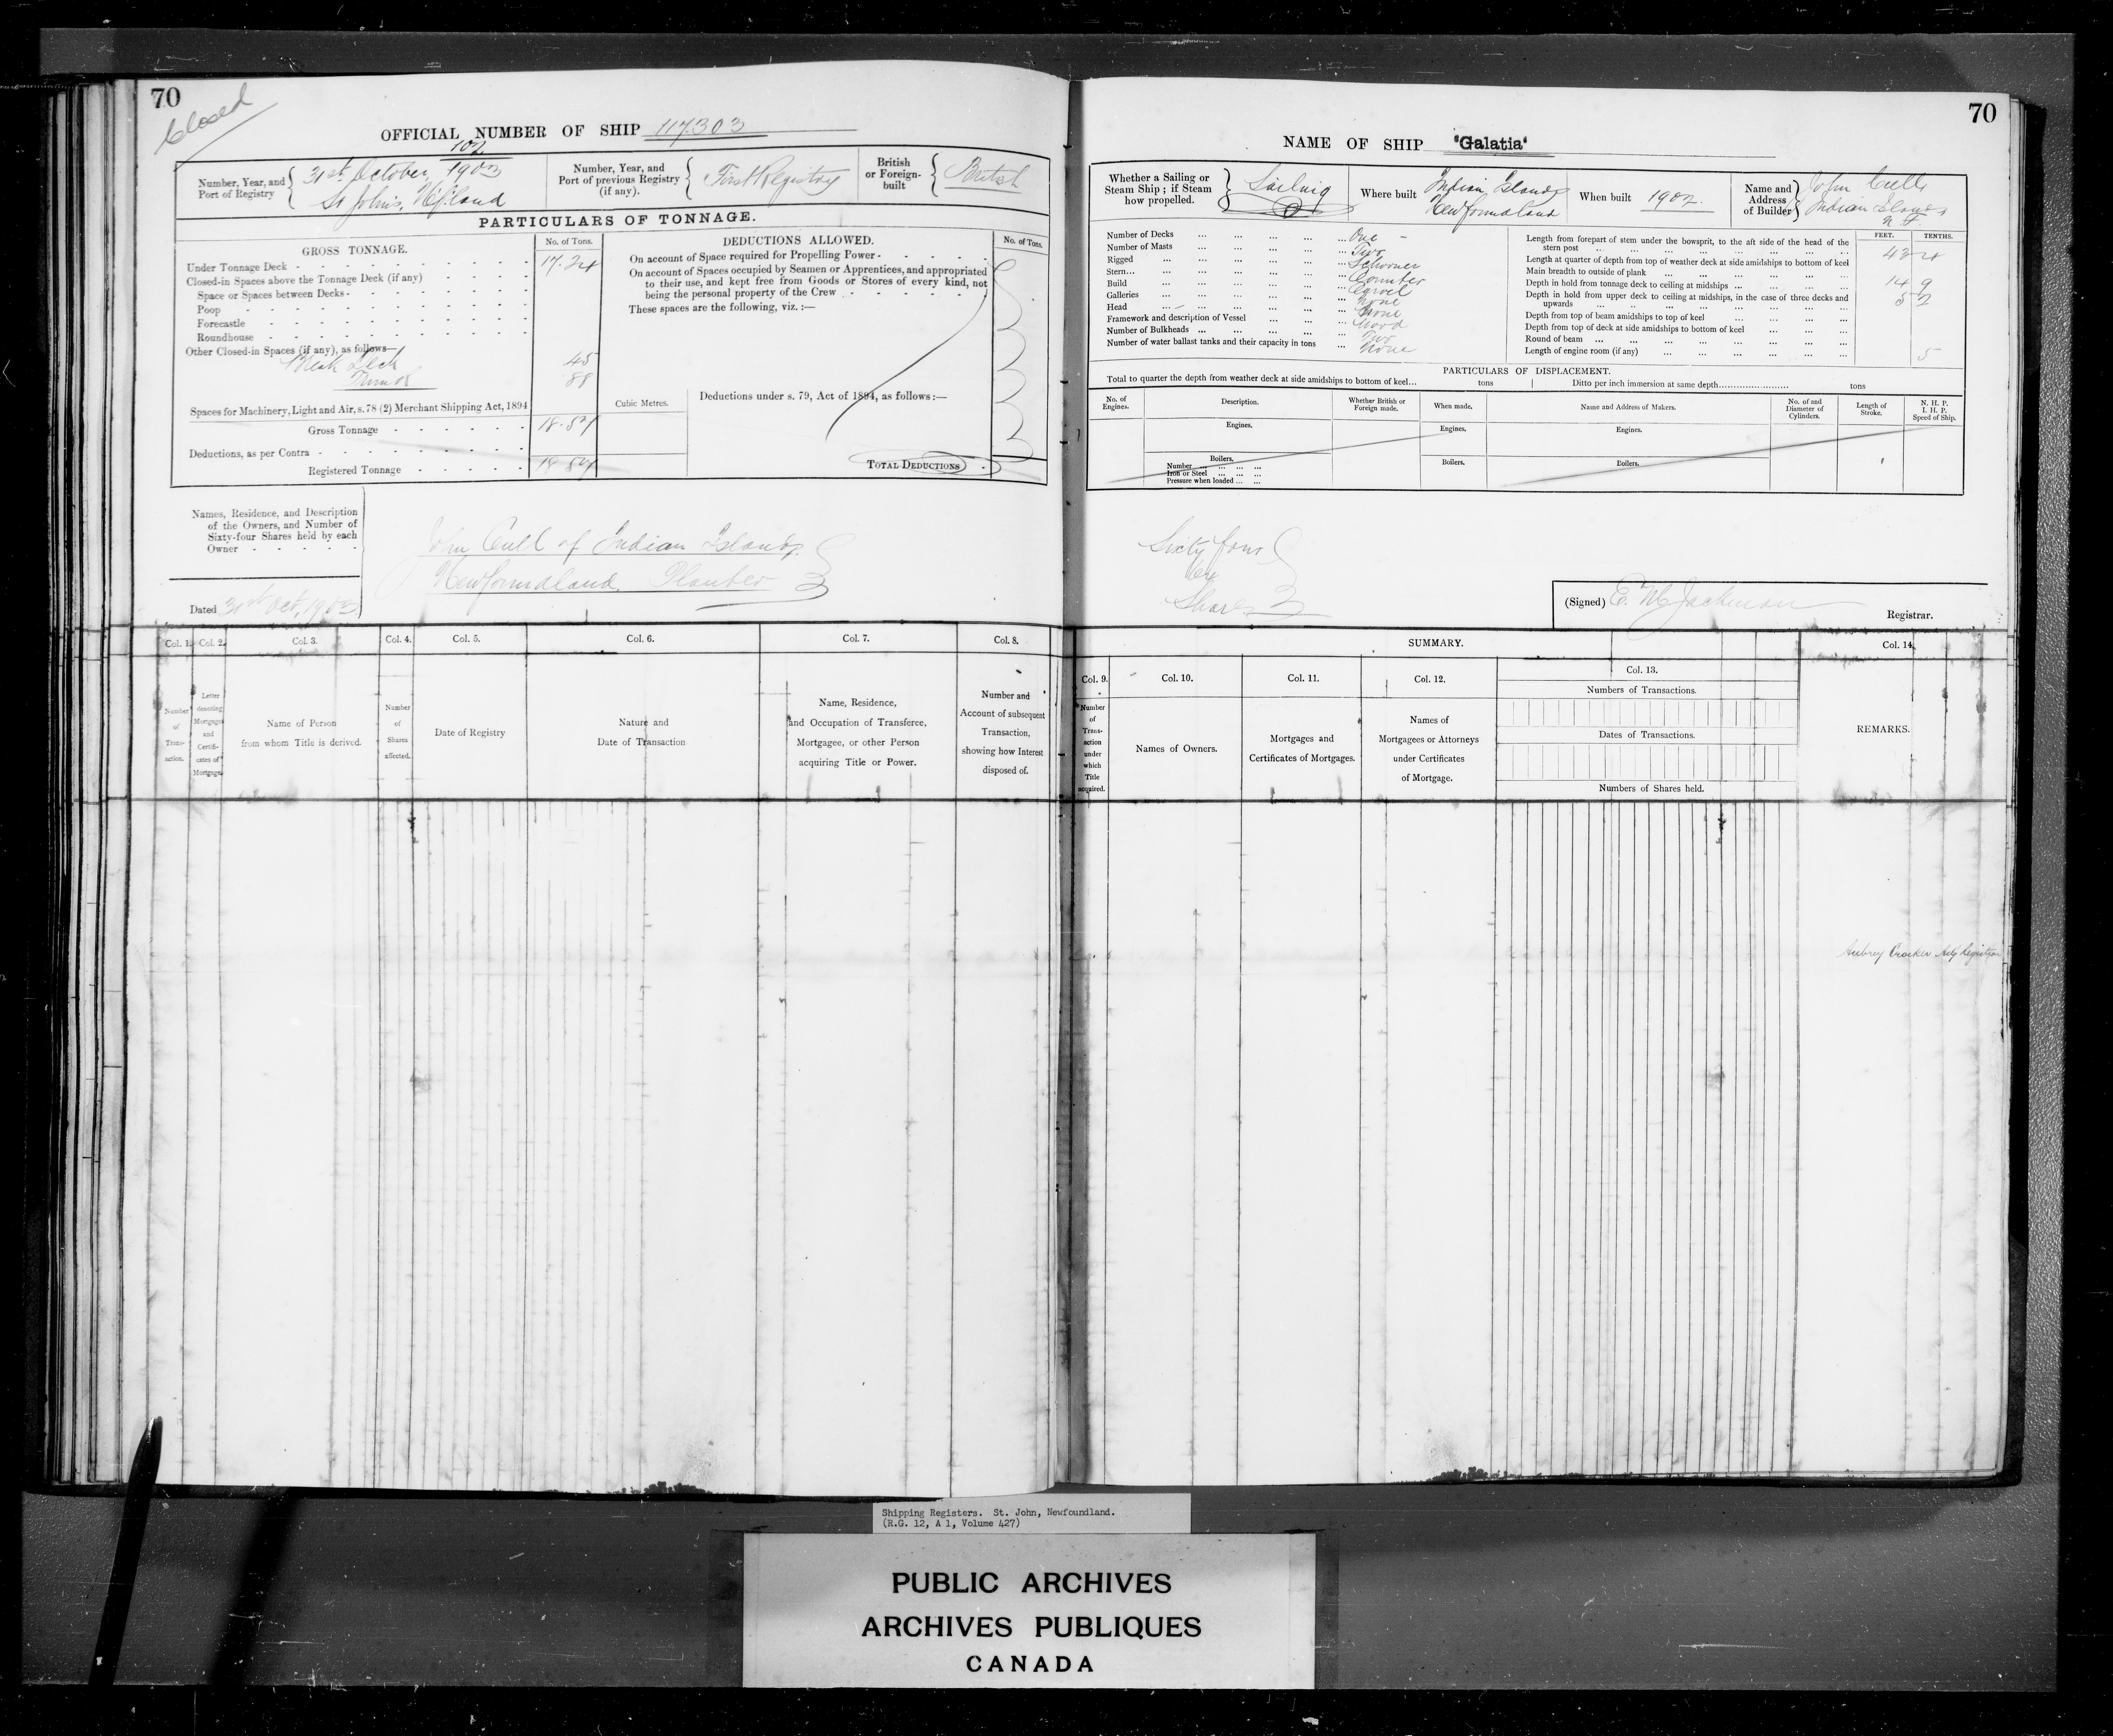 70
Closed
OFFICIAL NUMBER OF SHIP 117.303
102
Number, Year, and Port of Registry
31st October, 1903
St John's, Nfland
Number, Year, and Port of previous Registry (if any).
First Registry
British or Foreign-built
British
PARTICULARS OF TONNAGE.
GROSS TONNAGE.
No. of Tons.
Under Tonnage Deck 17.24
Closed-in Spaces above the Tonnage Deck (if any)
Space or Spaces between Decks
Poop
Forecastle
Roundhouse
Other Closed-in Spaces (if any), as follows—
Break Deck 45
Trunk 88
Spaces for Machinery, Light and Air, s. 78 (2) Merchant Shipping Act, 1894
Gross Tonnage 18.57
Deductions, as per Contra
Registered Tonnage 18.57
Cubic Metres.
DEDUCTIONS ALLOWED.
No. of Tons.
On account of Space required for Propelling Power
On account of Spaces occupied by Seamen or Apprentices, and appropriated
to their use, and kept free from Goods or Stores of every kind, not
being the personal property of the Crew
These spaces are the following, viz. :—
Deductions under s. 79, Act of 1894, as follows:—
TOTAL DEDUCTIONS
Names, Residence, and Description
of the Owners, and Number of
Sixty-four Shares held by each
Owner
John Cull of Indian Islands,
Newfoundland, Planter
Dated 31st Oct, 1903
Col. 1. Col. 2. Col. 3. Col. 4. Col. 5. Col. 6. Col. 7. Col. 8.
Number of Transaction.
Letter denoting Mortgages and Certificates of Mortgage.
Name of Person
from whom Title is derived.
Number of Shares affected.
Date of Registry
Nature and
Date of Transaction
Name, Residence,
and Occupation of Transferee,
Mortgagee, or other Person
acquiring Title or Power.
Number and
Account of subsequent
Transaction,
showing how Interest
disposed of.
70
NAME OF SHIP "Galatia"
Whether a Sailing or
Steam Ship ; if Steam
how propelled.
Sailing
Where built
Indian Islands
Newfoundland
When built 1902.
Name and
Address
of Builder
John Cull
Indian Islands
N. F.
Number of Decks One
Number of Masts Two
Rigged Schooner
Stern Counter
Build Carvel
Galleries None
Head None
Framework and description of Vessel Wood
Number of Bulkheads Two
Number of water ballast tanks and their capacity in tons None
FEET. TENTHS.
Length from forepart of stem under the bowsprit, to the aft side of the head of the
stern post 43 4
Length at quarter of depth from top of weather deck at side amidships to bottom of keel
Main breadth to outside of plank 14 9
Depth in hold from tonnage deck to ceiling at midships 5 2
Depth in hold from upper deck to ceiling at midships, in the case of three decks and
upwards
Depth from top of beam amidships to top of keel
Depth from top of deck at side amidships to bottom of keel
Round of beam 5
Length of engine room (if any)
PARTICULARS OF DISPLACEMENT.
Total to quarter the depth from weather deck at side amidships to bottom of keel... tons
Ditto per inch immersion at same depth........ tons
No. of Engines.
Description.
Whether British or Foreign made.
When made.
Name and Address of Makers.
No. of and Diameter of Cylinders.
Length of Stroke.
N. H. P.
I. H. P.
Speed of Ship.
Engines. Engines. Engines.
Boilers. Boilers. Boilers.
Number
Iron or Steel
Pressure when loaded
Sixty four
64
Shares
(Signed) E. M. Jackman
Registrar.
SUMMARY.
Col. 9. Col. 10. Col. 11. Col. 12. Col. 13. Col. 14.
Number of Transaction under which Title acquired.
Names of Owners.
Mortgages and
Certificates of Mortgages.
Names of
Mortgagees or Attorneys
under Certificates
of Mortgage.
Numbers of Transactions.
Dates of Transactions.
Numbers of Shares held.
REMARKS.
Aubrey Crocker Actg Registrar
Shipping Registers. St. John, Newfoundland.
(R.G. 12, A 1, Volume 427)
PUBLIC ARCHIVES
ARCHIVES PUBLIQUES
CANADA